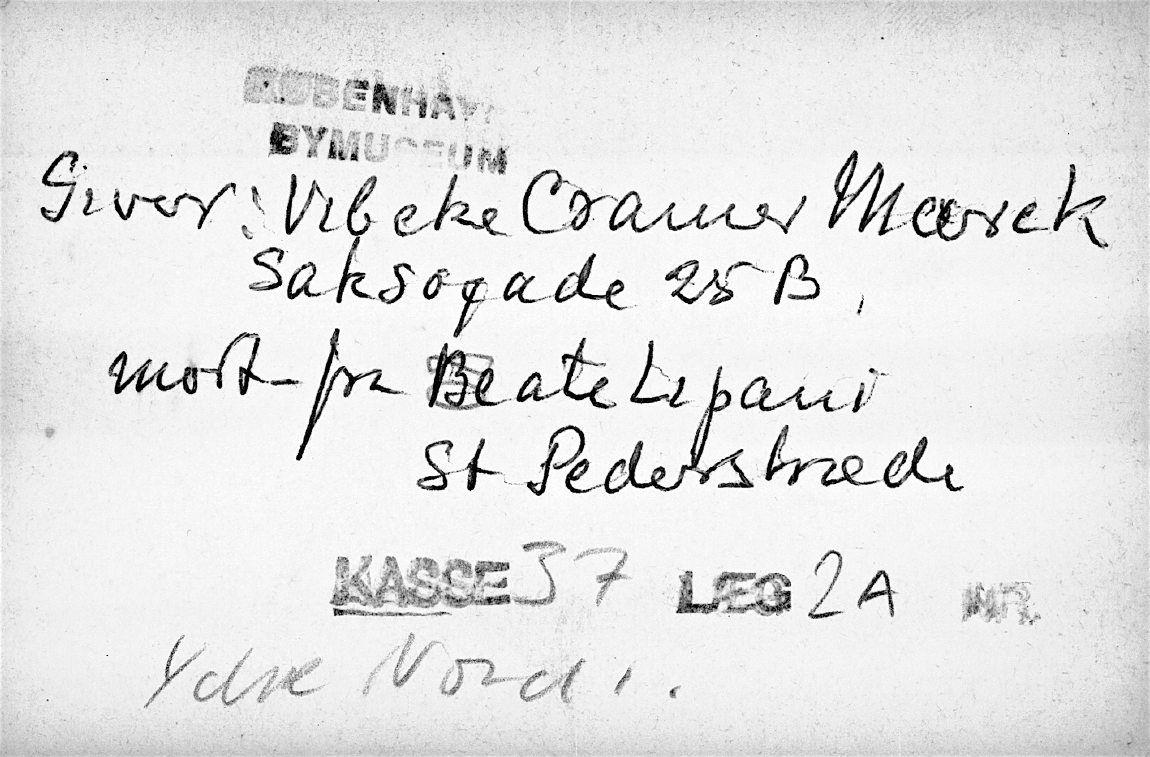 KØBENHAVN
BYMUSEUM
Giver: Vibeke Cramer Meerek
Saksogade 25 B,
modt fra Beate Lipani
St Pederstræde
KASSE 37 LÆG 2A NR.
Ydre Nord.